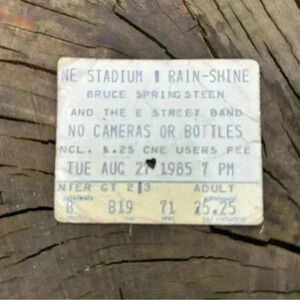 NE STADIUM RAIN-SHINE
BRUCE SPRINGSTEEN
AND THE E STREET BAND
NO CAMERAS OR BOTTLES
INCL. 1.25 CNE USERS FEE
TUE AUG 27 1985 7 PM
NTER GT 2 3 ADULT
B B19 71 25.25